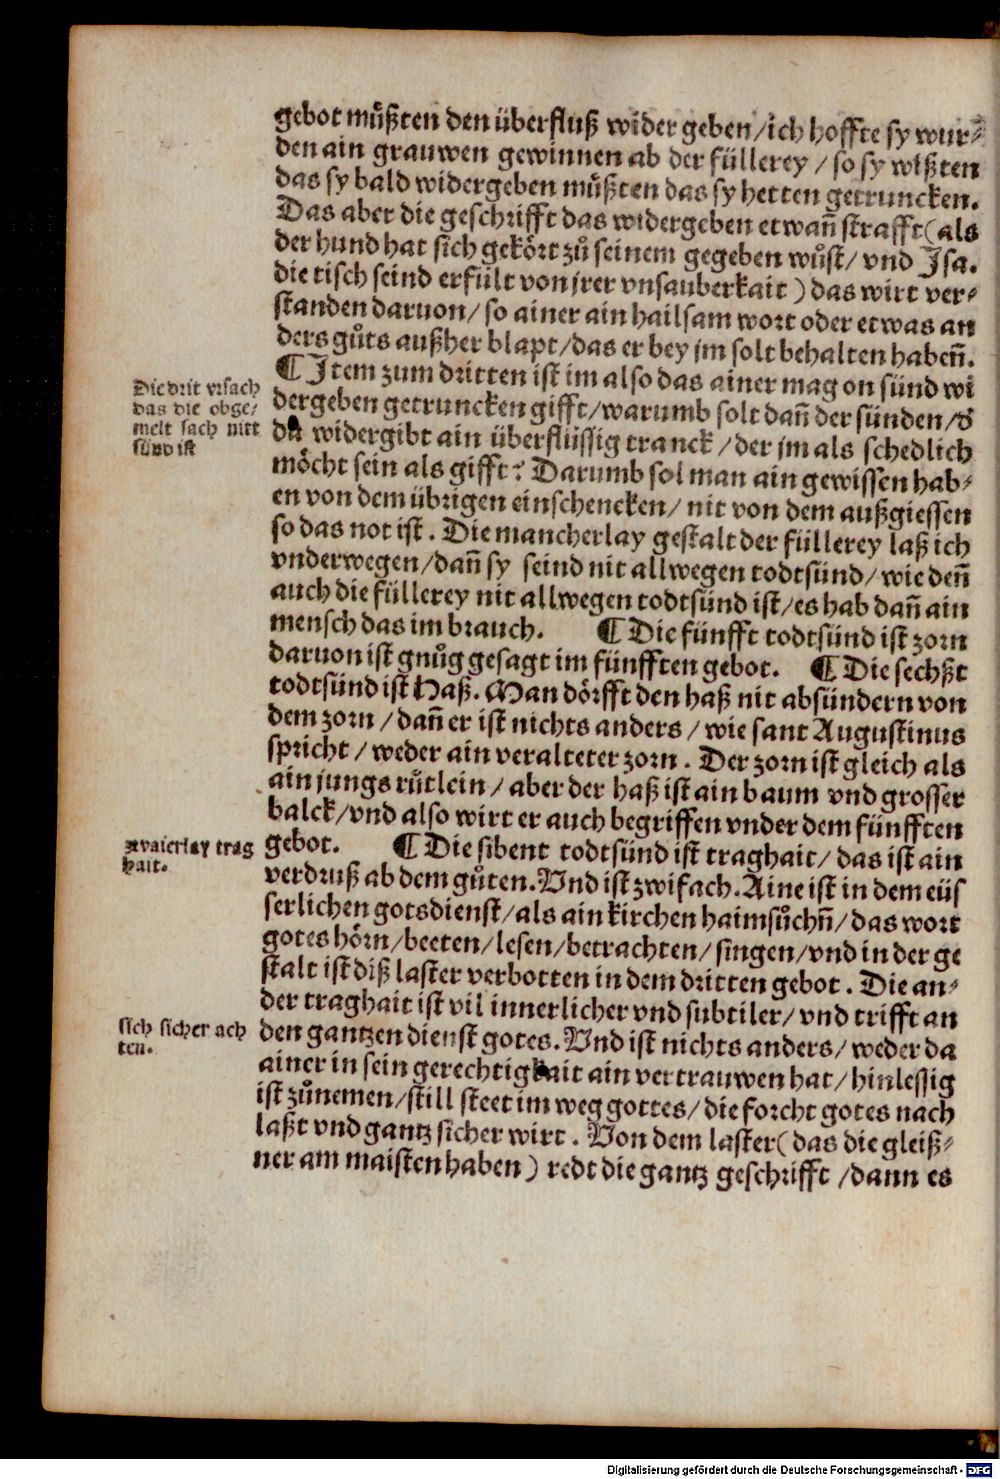 gebot muͤßten den überfluß wider geben/ich hoffte sy wur⸗
den ain grauwen gewinnen ab der füllerey / so sy wißten
das sy bald widergeben muͤßten das sy hetten getruncken.
Das aber die geschrifft das widergeben etwañ strafft(als
der hund hat sich gekoͤrt zuͦ seinem gegeben wuͦst/ vnd Jsa.
die tisch seind erfült von jrer vnsauberkait ) das wirt ver⸗
standen daruon/ so ainer ain hailsam wort oder etwas an
ders guͦts außher blapt/das er bey jm solt behalten habeñ.
¶ Jtem zum dritten ist im also das ainer mag on sünd wi
dergeben getruncken gifft/warumb solt dañ der sünden/d̕
da widergibt ain überflüssig tranck /der jm als schedlich
moͤcht sein als gifft? Darumb sol man ain gewissen hab⸗
en von dem übrigen einschencken/ nit von dem außgiessen
so das not ist. Die mancherlay gestalt der füllerey laß ich
vnderwegen/dañ sy seind nit allwegen todtsünd/ wie deñ
auch die füllerey nit allwegen todtsünd ist/es hab dañ ain
mensch das im brauch. ¶ Die fünfft todtsünd ist zorn
daruon ist gnuͦg gesagt im fünfften gebot. ¶ Die sechßt
todtsünd ist Haß. Man doͤrfft den haß nit absündern von
dem zorn / dañ er ist nichts anders / wie sant Augustinus
spricht / weder ain veralteter zorn. Der zorn ist gleich als
ain jungs ruͤtlein / aber der haß ist ain baum vnd grosser
balck/vnd also wirt er auch begriffen vnder dem fünfften
gebot. ¶ Die sibent todtsünd ist traghait/ das ist ain
verdruß ab dem guͦten. Vnd ist zwifach. Aine ist in dem eüs
serlichen gotsdienst/als ain kirchen haimsuͦchñ/ das wort
gotes hoͤrn/beeten/lesen/betrachten/singen/vnd in der ge
stalt ist diß laster verbotten in dem dritten gebot. Die an⸗
der traghait ist vil innerlicher vnd subtiler/ vnd trifft an
den gantzen dienst gotes. Vnd ist nichts anders/ weder da
ainer in sein gerechtigkait ain vertrauwen hat/ hinlessig
ist zuͦnemen/still steet im weg gottes/ die forcht gotes nach
laßt vnd gantz sicher wirt. Von dem laster(das die gleiß⸗
ner am maisten haben) redt die gantz geschrifft /dann es
Die drit vrsach
das die obge⸗
melt sach nitt
sünd ist
zwaierlay trag
hait.
sich sicher ach
ten.
Digitalisierung gefördert durch die Deutsche Forschungsgemeinschaft - DFG